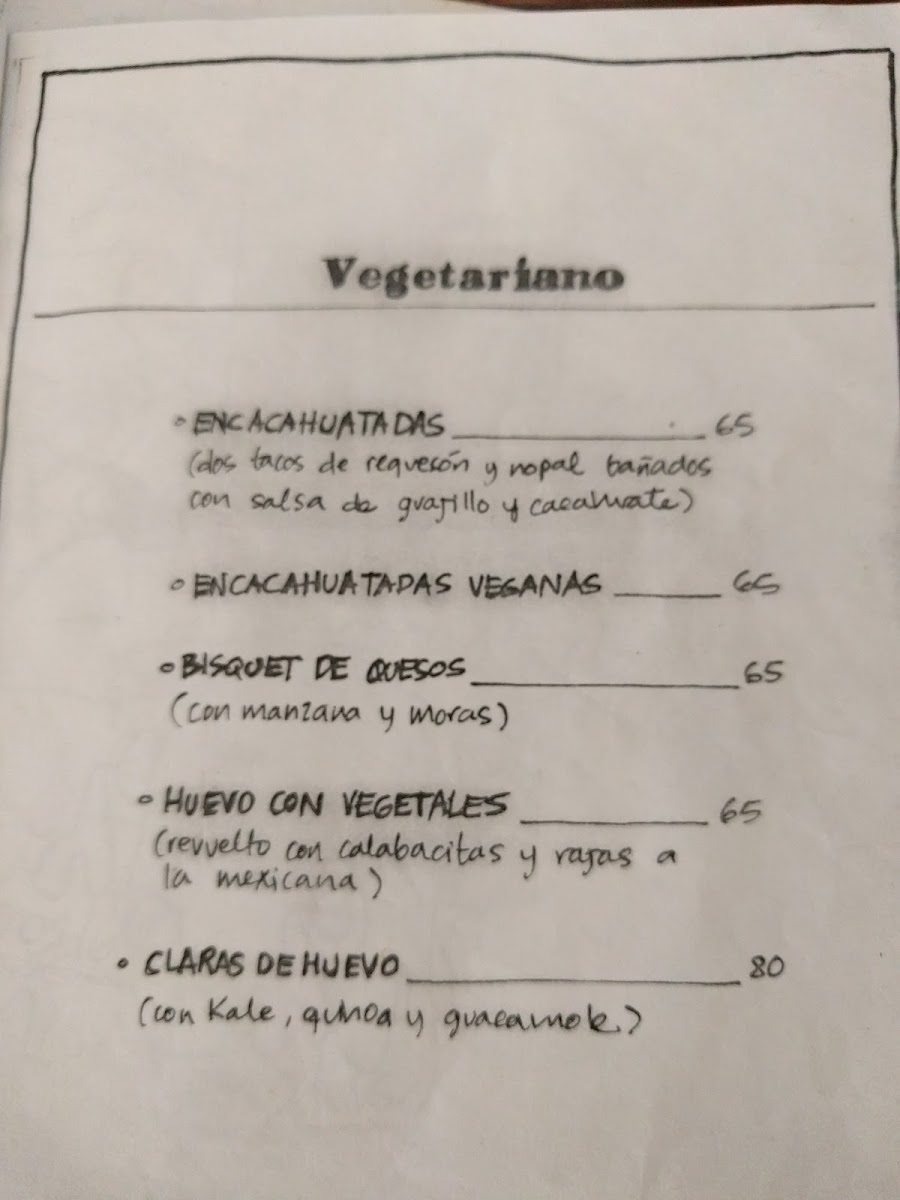 Vegetariano
◦ ENCACAHUATADAS ____________ 65
(dos tacos de requesón y nopal bañados
con salsa de guajillo y cacahuate)
◦ ENCACAHUATADAS VEGANAS _____ 65
◦ BISQUET DE QUESOS ____________ 65
(con manzana y moras)
◦ HUEVO CON VEGETALES ________ 65
(revuelto con calabacitas y rajas a
la mexicana)
• CLARAS DE HUEVO ______________ 80
(con Kale, quinoa y guacamole)